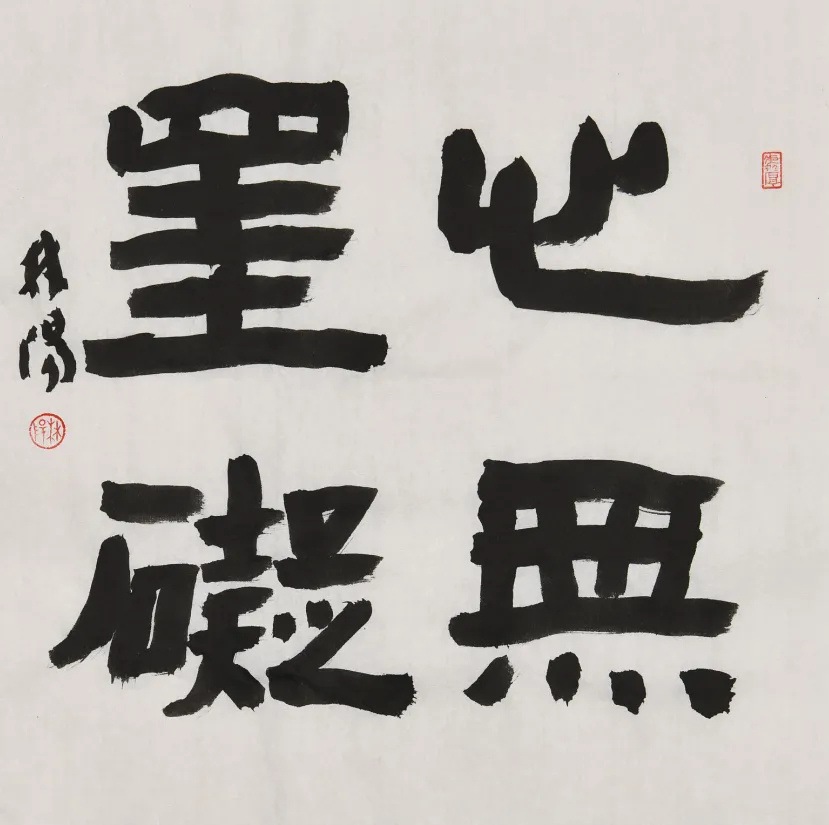 心無
罣礙
林陽